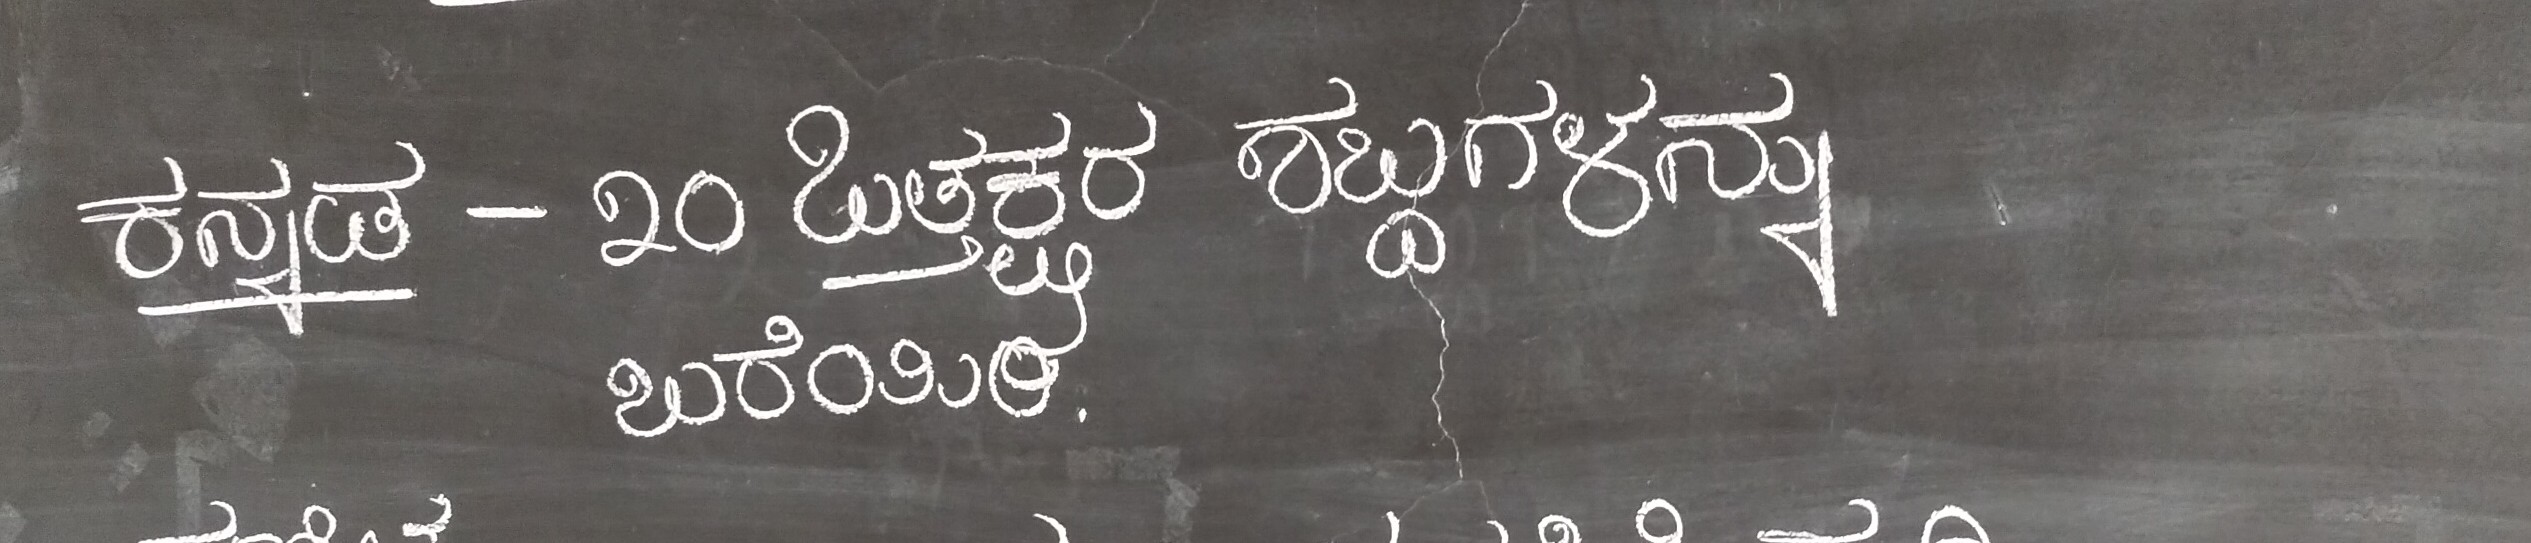 ಕನ್ನಡ - ೨೦ ಒತ್ತಕ್ಷರ ಶಬ್ದಗಳನ್ನು
ಬರೆಯಿರಿ.